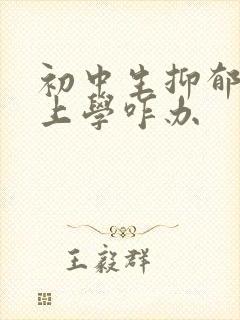 初中生抑郁
上學咋办
王毅群